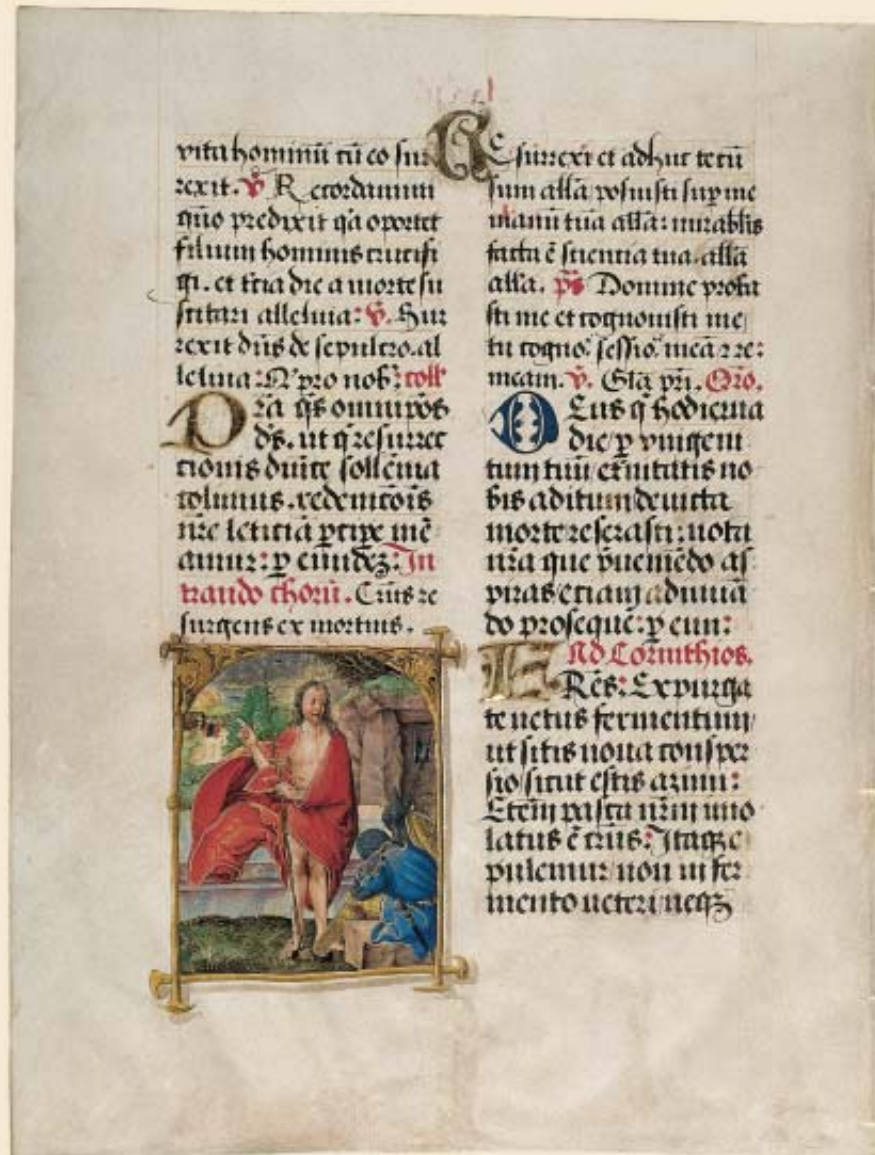 vita hominū cū eo sur
rexit. v̄ Recordamini
quō predixit q̄a oportet
filium hominis crucifi
gi. et t̄cia die a morte su
scitari alleluia: v̄. Sur
rexit dn̄s de sepulcro. al
leluia: pro nob̄: coll̄
Pra q̄s omnip̄os
d̄s. ut q̄ resurrec
tionis dn̄ice sollēnia
colimus. redemcōis
nr̄e leticiā p̄cipe mē
amur: p̄ eundez: In
trando chorū. Cr̄us re
surgens ex mortuis.
Resurrexi et adhuc tecū
sum all̄a posuisti sup̄ me
manū tuā all̄a: mirabl̄is
facta ē scientia tua. all̄a
all̄a. p̄s Domine proba
sti me et cognouisti me
tu cogno: sessio: meā re:
meam. v̄. Gl̄a pr̄i. Or̄o.
Deus q̄ hodierna
die p̄ vnigeni
tum tuū et̄nitatis no
bis aditum deuicta
morte reserasti: uota
nr̄a que p̄ueniēdo as
piras etiam adiuuā
do proseque: p̄ eun:
Ad Corinthios.
Fr̄es: Expurga
te uetus fermentum
ut sitis noua consper
sio sicut estis azimi:
Etem̄ pasca nr̄m imo
latus ē cr̄us: Itaqz e
pulemur non in fer
mento ueteri neqz